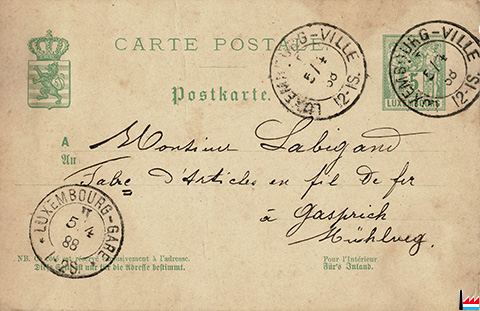 CARTE POSTALE
Postkarte.
LUXEMBOURG-VILLE
5/4
88
12-1S.
LUXEMBOURG-VILLE
5/4
88
12-1S.
5
LUXEMBOURG
A
An
Monsieur Labigand
Fabr. d'Articles en fil de fer
à Gasprich
Mühlweg.
LUXEMBOURG-GARE
5/4
88
NB. Ce côté est réservé exclusivement à l'adresse.
Diese Seite ist nur für die Adresse bestimmt.
Pour l'Intérieur
Für's Inland.